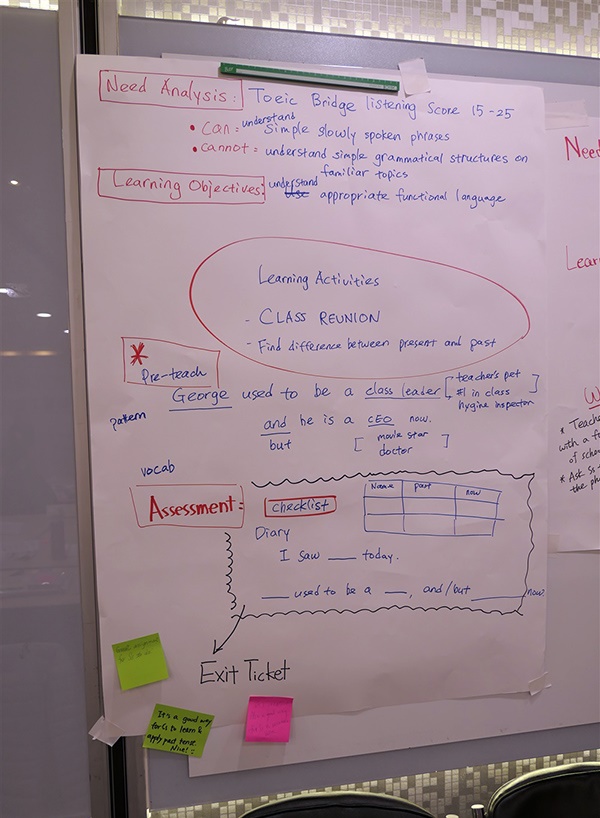 Need Analysis: Toeic Bridge listening Score 15-25
• can = understand simple slowly spoken phrases
• cannot = understand simple grammatical structures on
familiar topics
Learning Objectives: understand use appropriate functional language
Learning Activities
- CLASS REUNION
- Find difference between present and past
* Pre-teach
George used to be a class leader [teacher's pet
#1 in class
hygine inspector]
pattern
and he is a CEO now.
but [movie star
doctor]
vocab
Assessment:
checklist
Name past now
Diary
I saw ___ today.
___ used to be a ___, and/but ___ now.
Exit Ticket
It's a good way
for Ss to learn &
apply past tense
Nice! :)
Need
Lear
W
* Teache
with a f
of scho
* Ask Ss
the ph